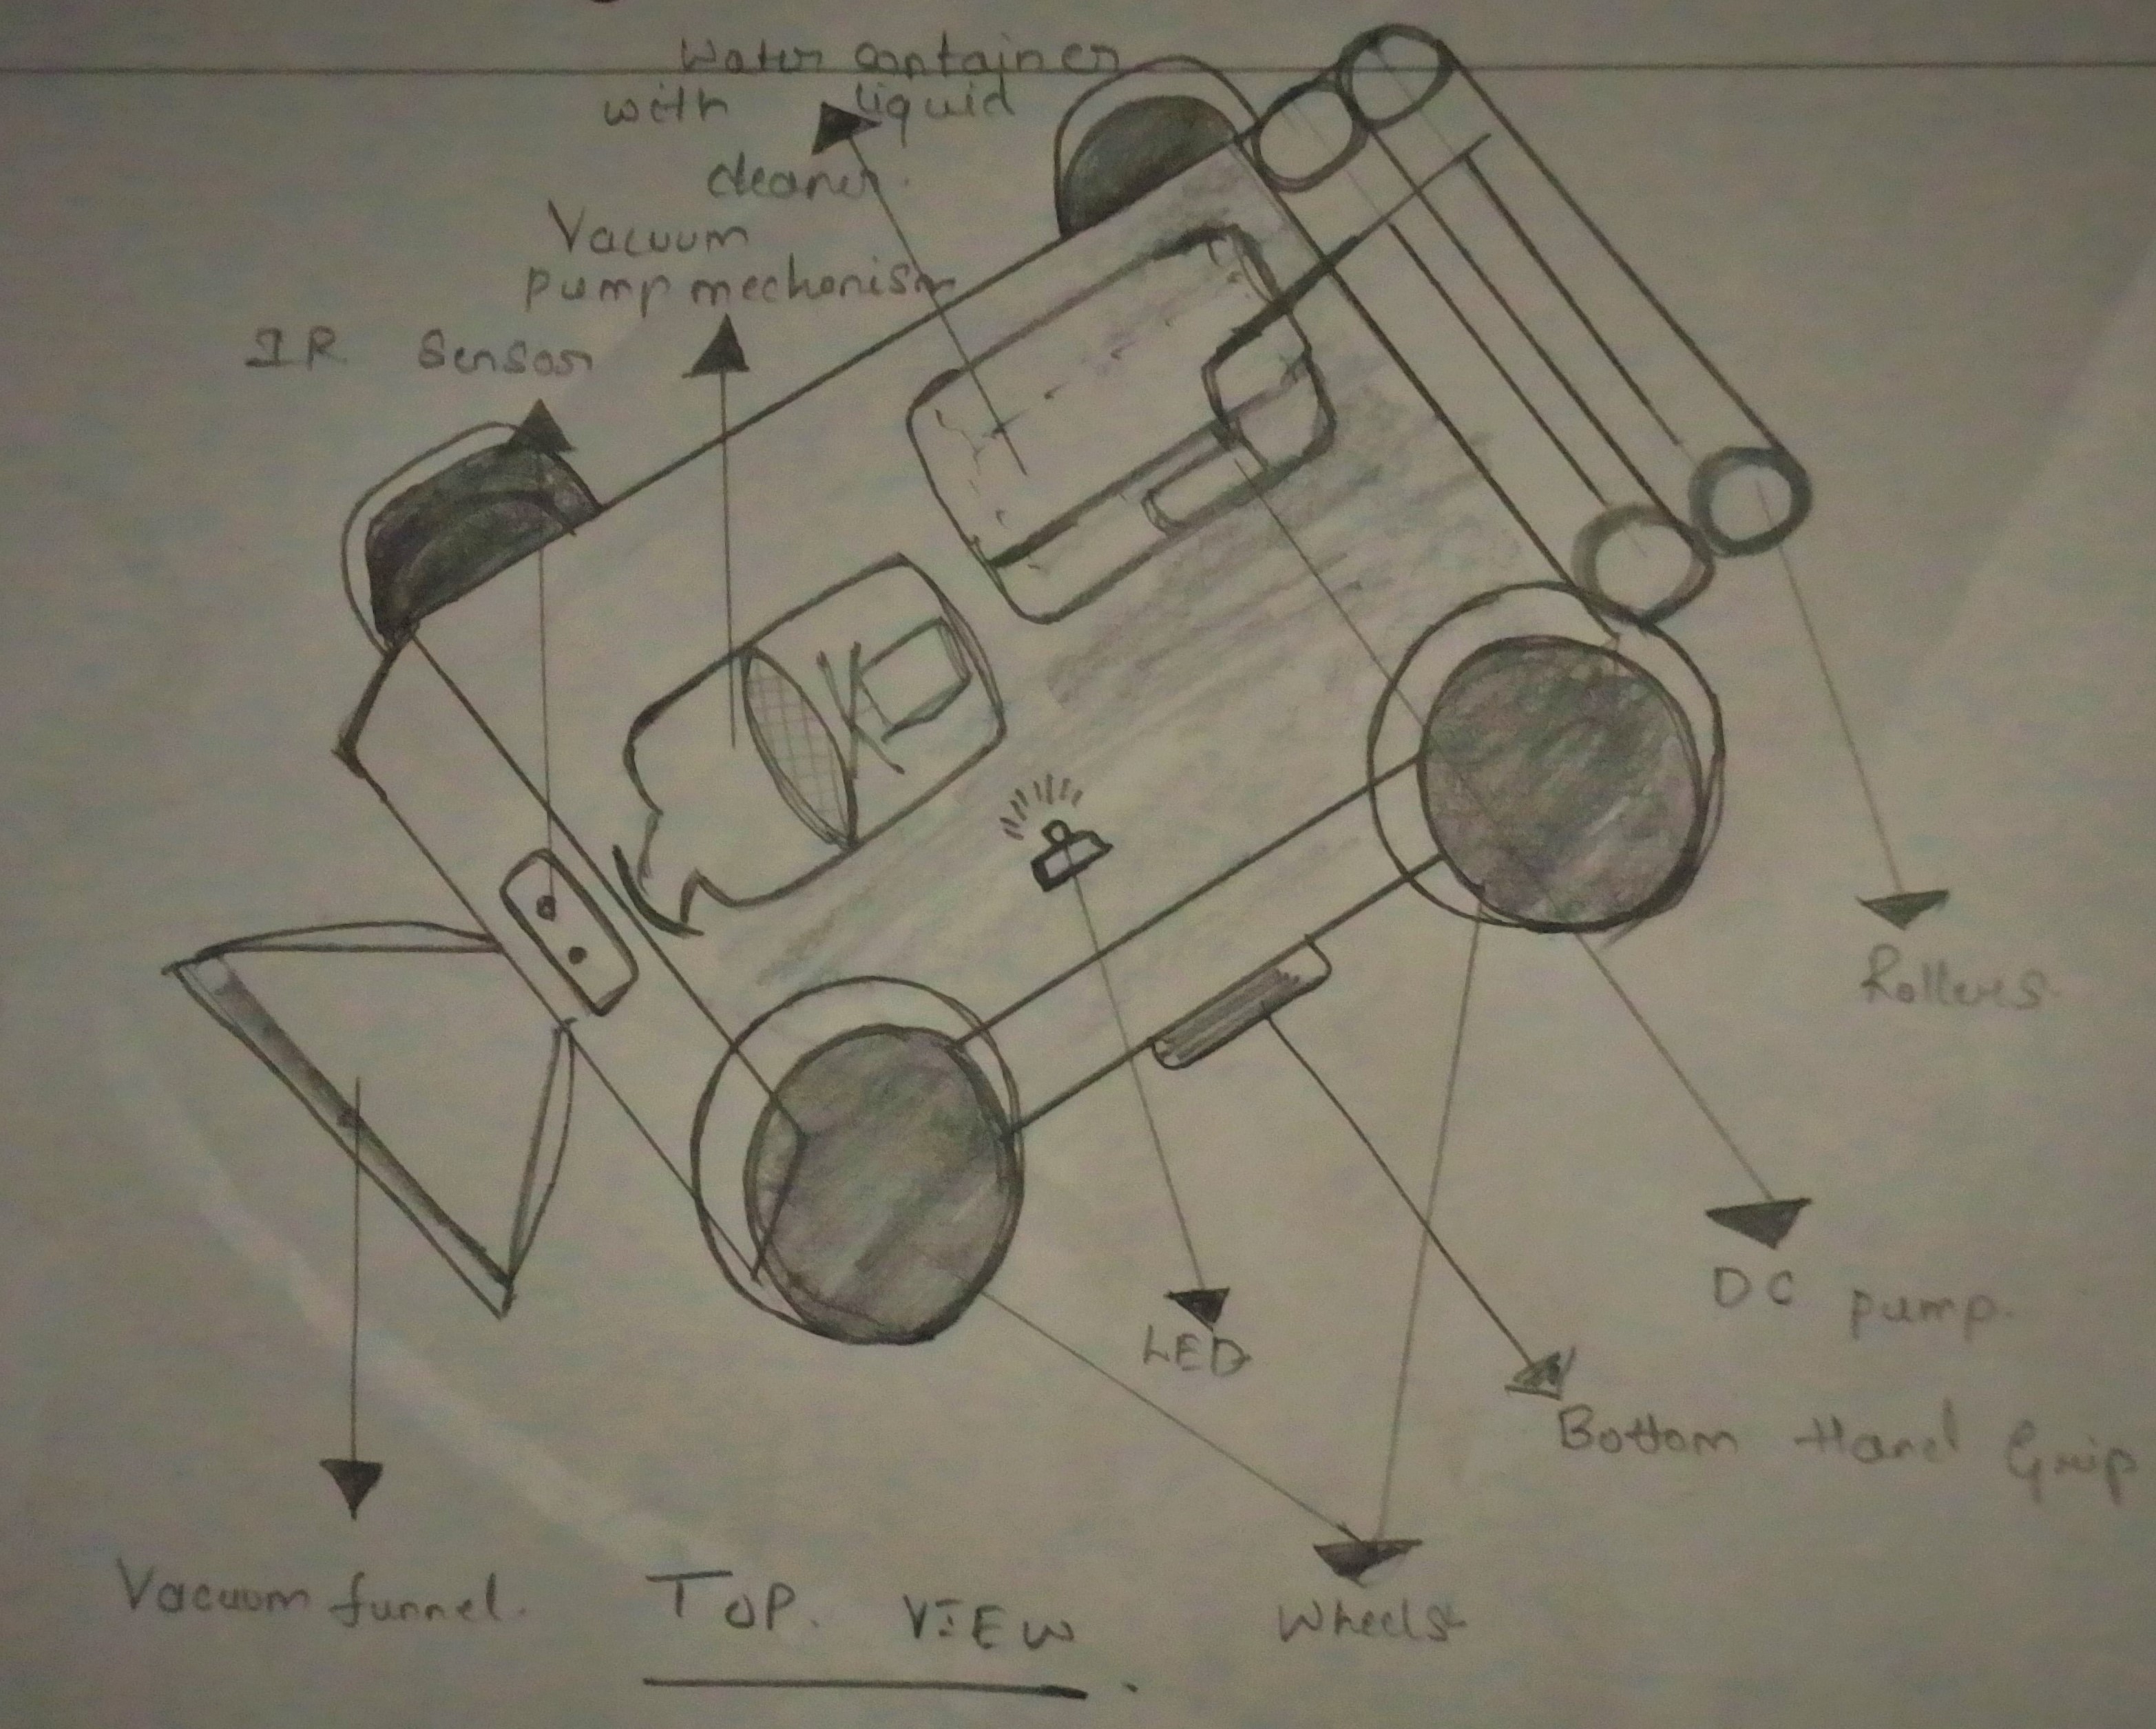 Water container
with liquid
cleaner.
Vacuum
pump mechanism
IR Sensor
Rollers
DC pump.
LED
Bottom Hand Grip
Vacuum funnel.
TOP. VIEW
Wheels